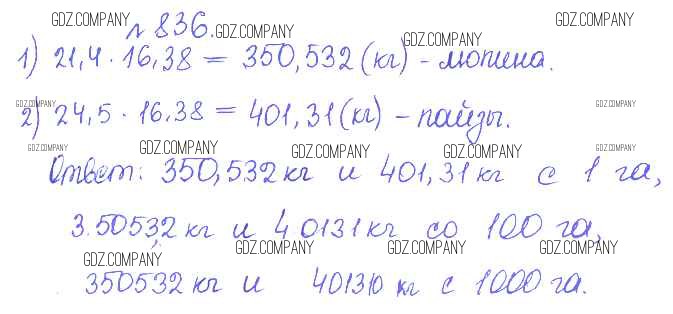 № 836.
GDZ.COMPANY GDZ.COMPANY GDZ.COMPANY GDZ.COMPANY
1) 21,4 · 16,38 = 350,532 (кг) - люпина.
GDZ.COMPANY GDZ.COMPANY
2) 24,5 · 16,38 = 401,31 (кг) - пайзы.
GDZ.COMPANY GDZ.COMPANY GDZ.COMPANY GDZ.COMPANY GDZ.COMPANY
Ответ: 350,532 кг и 401,31 кг с 1 га,
35053,2 кг и 40131 кг со 100 га,
GDZ.COMPANY GDZ.COMPANY GDZ.COMPANY GDZ.COMPANY
350532 кг и 401310 кг с 1000 га.